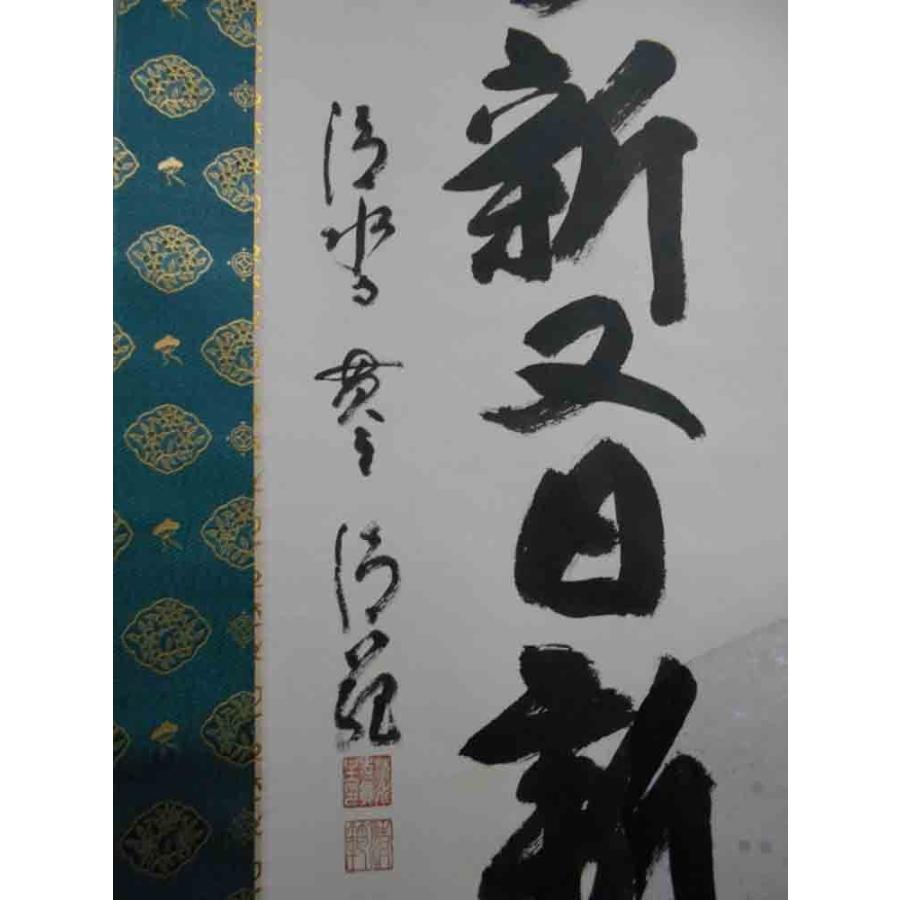 新又日新
清水寺 貫主 清範